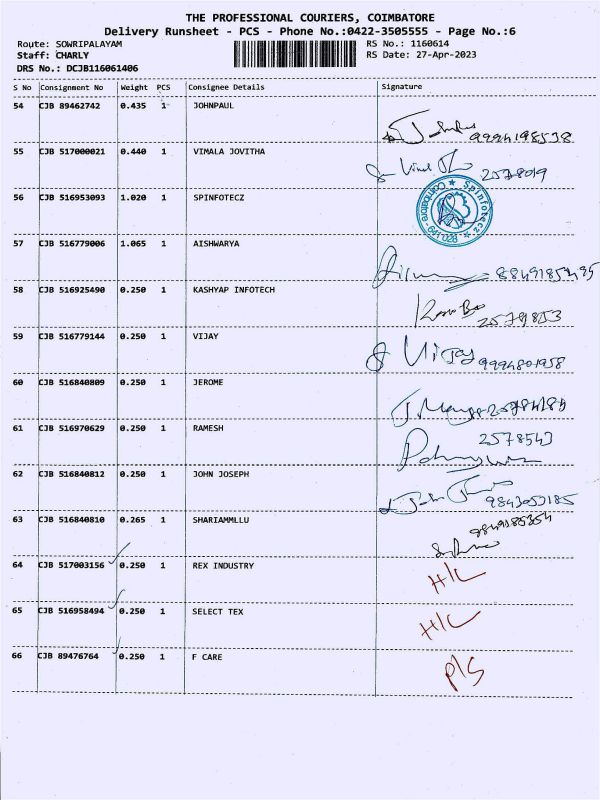 THE PROFESSIONAL COURIERS, COIMBATORE
Delivery Runsheet - PCS - Phone No.:0422-3505555 - Page No.:6
Route: SOWRIPALAYAM RS No.: 1160614
Staff: CHARLY RS Date: 27-Apr-2023
DRS No.: DCJB116061406
S No Consignment No Weight PCS Consignee Details Signature
54 CJB 89462742 0.435 1 JOHNPAUL
9994198538
55 CJB 517000021 0.440 1 VIMALA JOVITHA
2578019
56 CJB 516953093 1.020 1 SPINFOTECZ
Spinfotecz ★ Coimbatore-641 028 ★
57 CJB 516779006 1.065 1 AISHWARYA
58 CJB 516925490 0.250 1 KASHYAP INFOTECH
59 CJB 516779144 0.250 1 VIJAY
Vijay 9994801958
60 CJB 516840809 0.250 1 JEROME
61 CJB 516970629 0.250 1 RAMESH
2578543
62 CJB 516840812 0.250 1 JOHN JOSEPH
9843053185
63 CJB 516840810 0.265 1 SHARIAMMLLU
64 CJB 517003156 0.250 1 REX INDUSTRY
H/C
65 CJB 516958494 0.250 1 SELECT TEX
H/C
66 CJB 89476764 0.250 1 F CARE
P/S